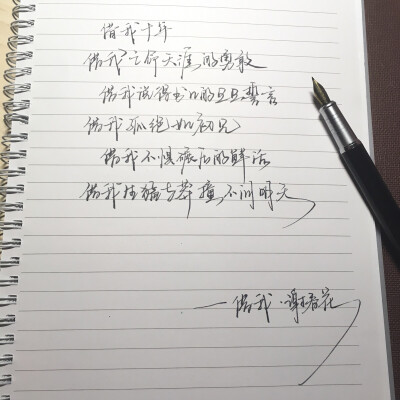 借我十年
借我亡命天涯的勇敢
借我说得出口的旦旦誓言
借我孤绝如初见
借我不惧碾压的鲜活
借我生猛与莽撞不问明天
—借我·谢春花